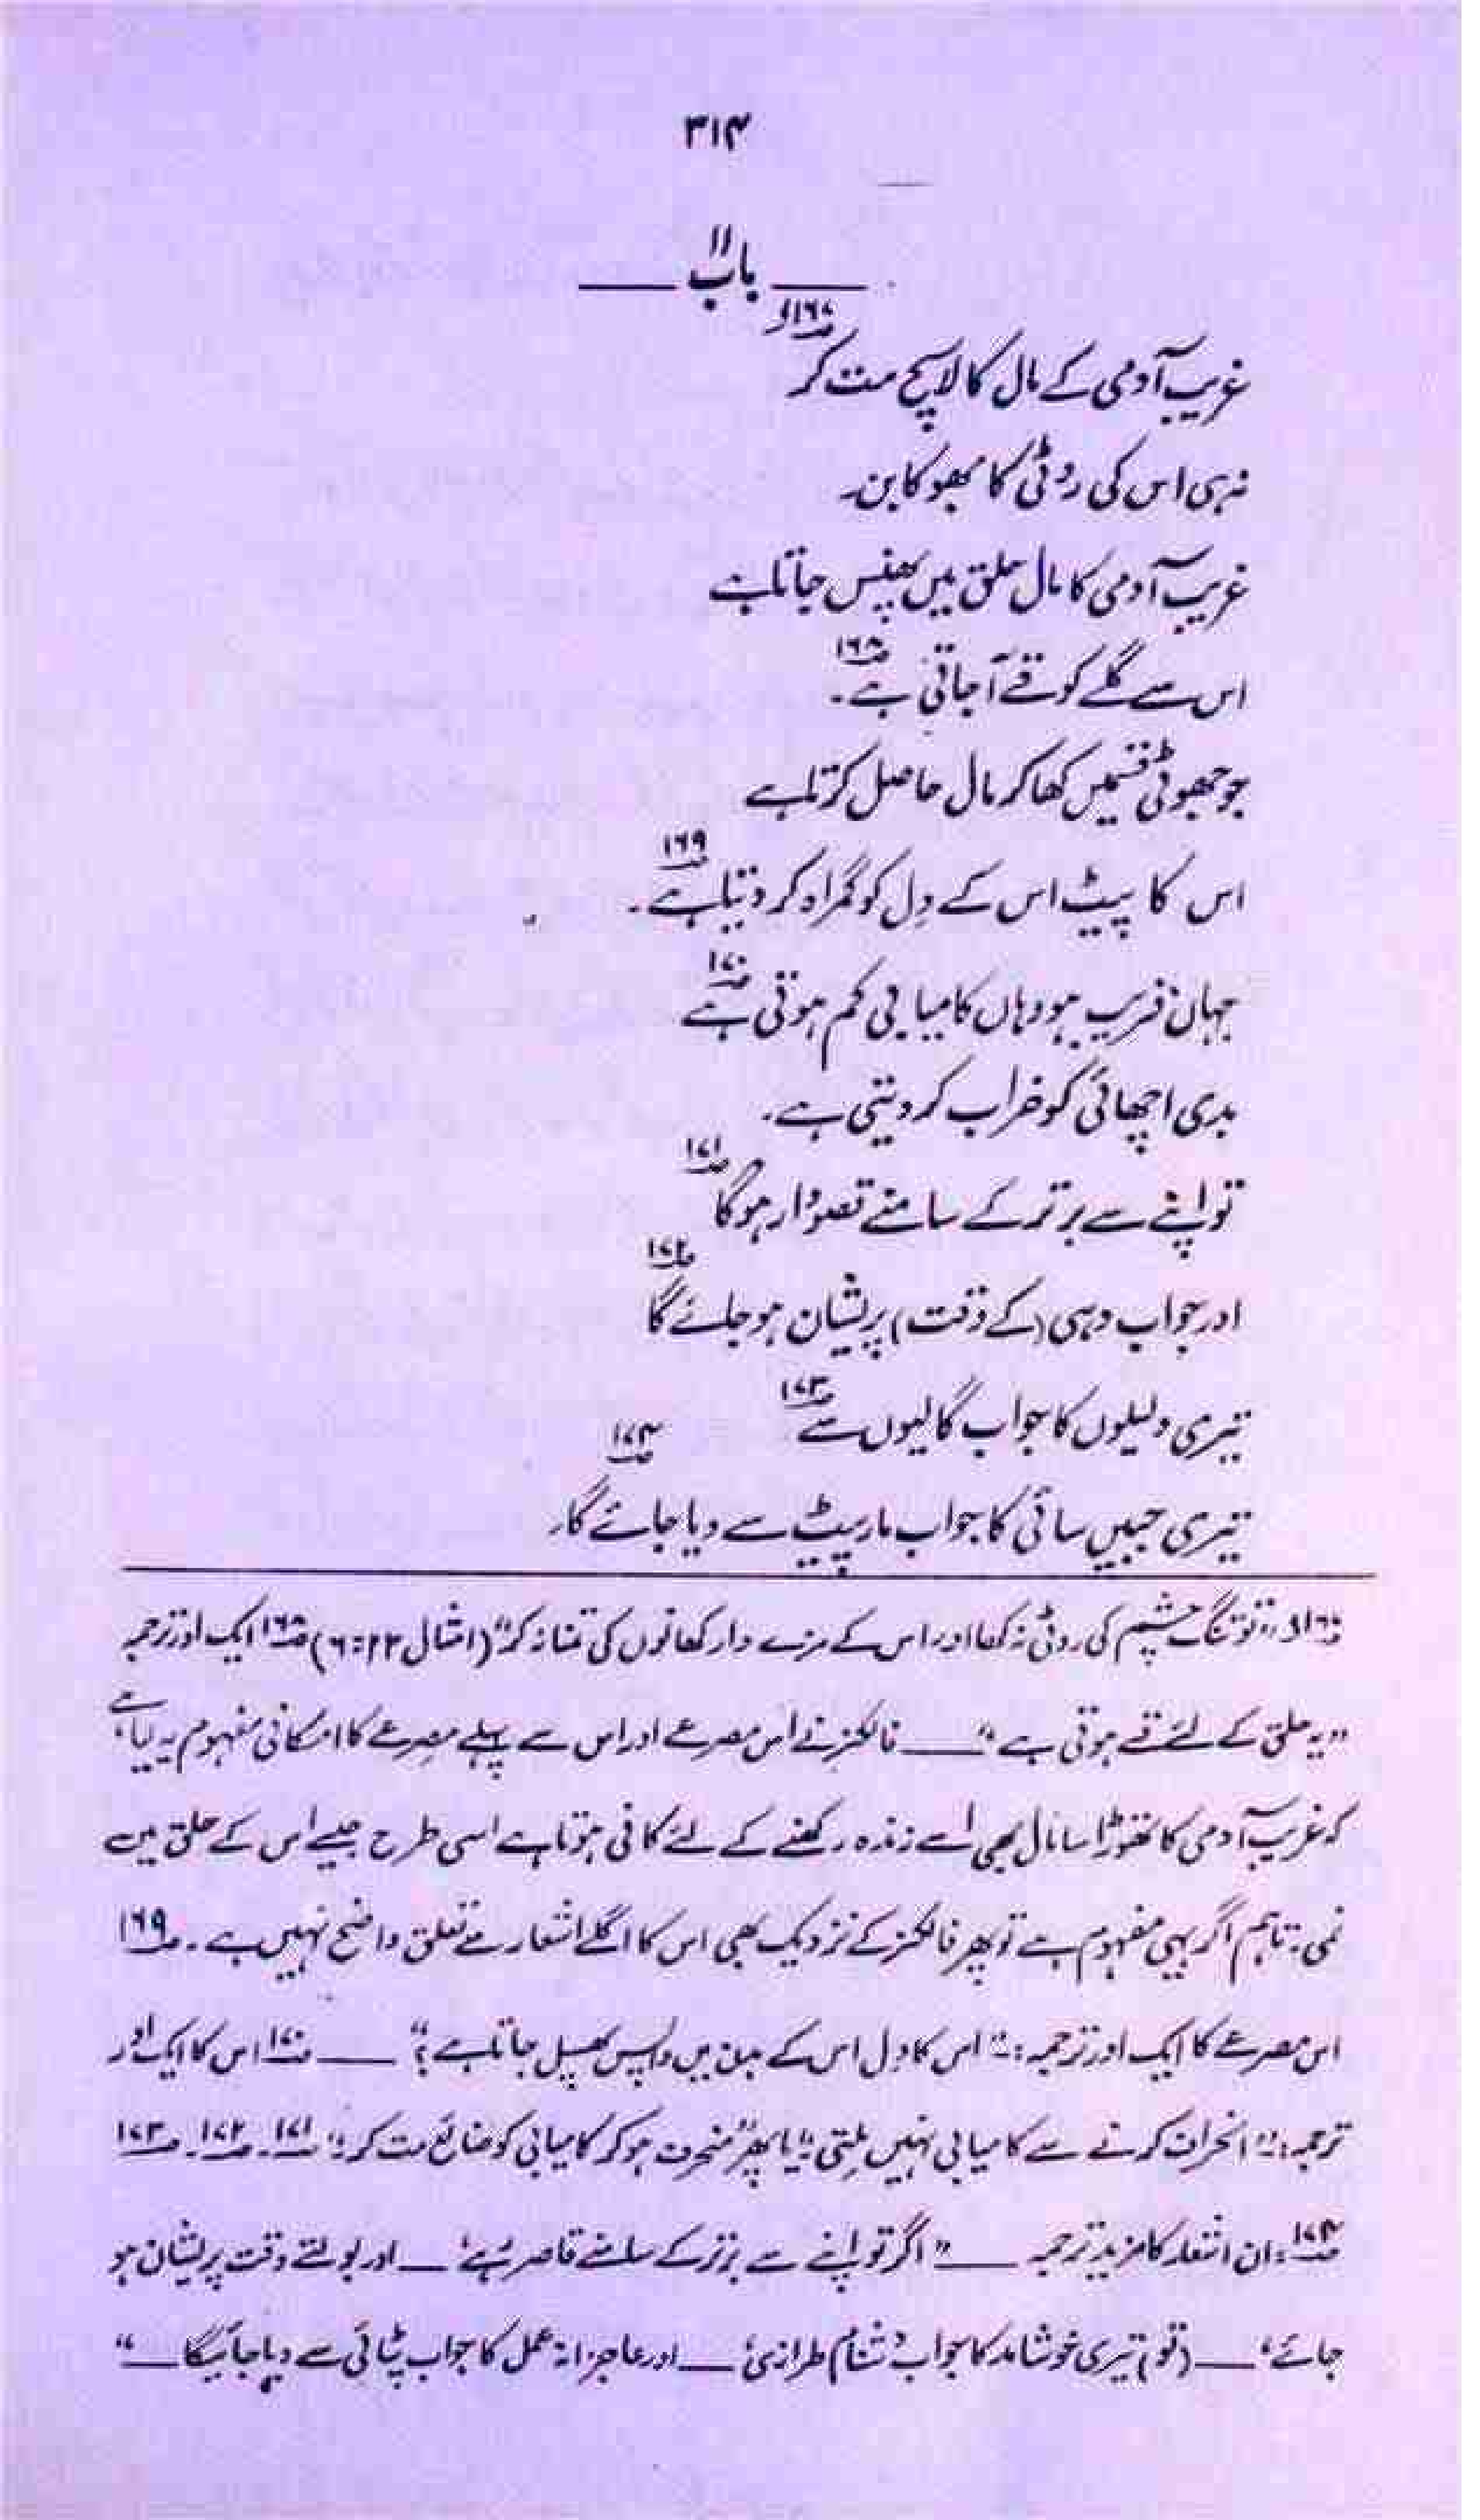 ۳۱۴
باب ۱۱
۱۶۷و
غریب آدمی کے مال کا لالچ مت کر
نہ ہی اس کی روٹی کا بھوکا بن۔
غریب آدمی کا مال حلق میں پھنس جاتا ہے
اس سے گلے کو قے آ جاتی ہے۔ ۱۶۸
جو جھوٹی قسمیں کھا کر مال حاصل کرتا ہے
اس کا پیٹ اس کے دِل کو گمراہ کر دیتا ہے۔ ۱۶۹
جہاں فریب ہو وہاں کامیابی کم ہوتی ہے ۱۷۰
بدی اچھائی کو خراب کر دیتی ہے۔
تو اپنے سے برتر کے سامنے قصوُوار ہوگا ۱۷۱
اور جواب دہی (کے وقت) پریشان ہو جائے گا ۱۷۲
تیری دلیلوں کا جواب گالیوں سے ۱۷۳
تیری جبیں سائی کا جواب مارپیٹ سے دیا جائے گا۔ ۱۷۴
۱۶۷و: "تو تنگ چشم کی روٹی نہ کھا اور اس کے مزے دار کھانوں کی تمنا نہ کر" (امثال ۲۳:۶) ۱۶۸ ایک اور ترجمہ
"یہ حلق کے لئے قے ہوتی ہے" ـــــ فالکنر نے اس مصرعے اور اس سے پہلے مصرعے کا امکانی مفہوم یہ لیا ہے
کہ غریب آدمی کا تھوڑا سا مال بھی اسے زندہ رکھنے کے لئے کافی ہوتا ہے اسی طرح جیسے اس کے حلق میں
نمی۔ تاہم اگر یہی مفہوم ہے تو پھر فالکنر کے نزدیک بھی اس کا اگلے اشعار سے تعلق واضح نہیں ہے۔ ۱۶۹
اس مصرعے کا ایک اور ترجمہ:۔ "اس کا دل اس کے بدن میں واپس پھسل جاتا ہے؟" ـــــ ۱۷۰ اس کا ایک اور
ترجمہ:۔ "انحراف کرنے سے کامیابی نہیں ملتی" یا پھر "منحرف ہو کر کامیابی کو ضائع مت کر"۔ ۱۷۱۔ ۱۷۲۔ ۱۷۳
۱۷۴: ان اشعار کا مزید ترجمہ ـــــ "اگر تو اپنے سے برتر کے سامنے قاصر ہے، ـــ اور بولتے وقت پریشان ہو
جائے، ـــــ (تو) تیری خوشامد کا جواب دشنام طرازی، ـــــ اور عاجزانہ عمل کا جواب پٹائی سے دیا جائیگا ـــــ"